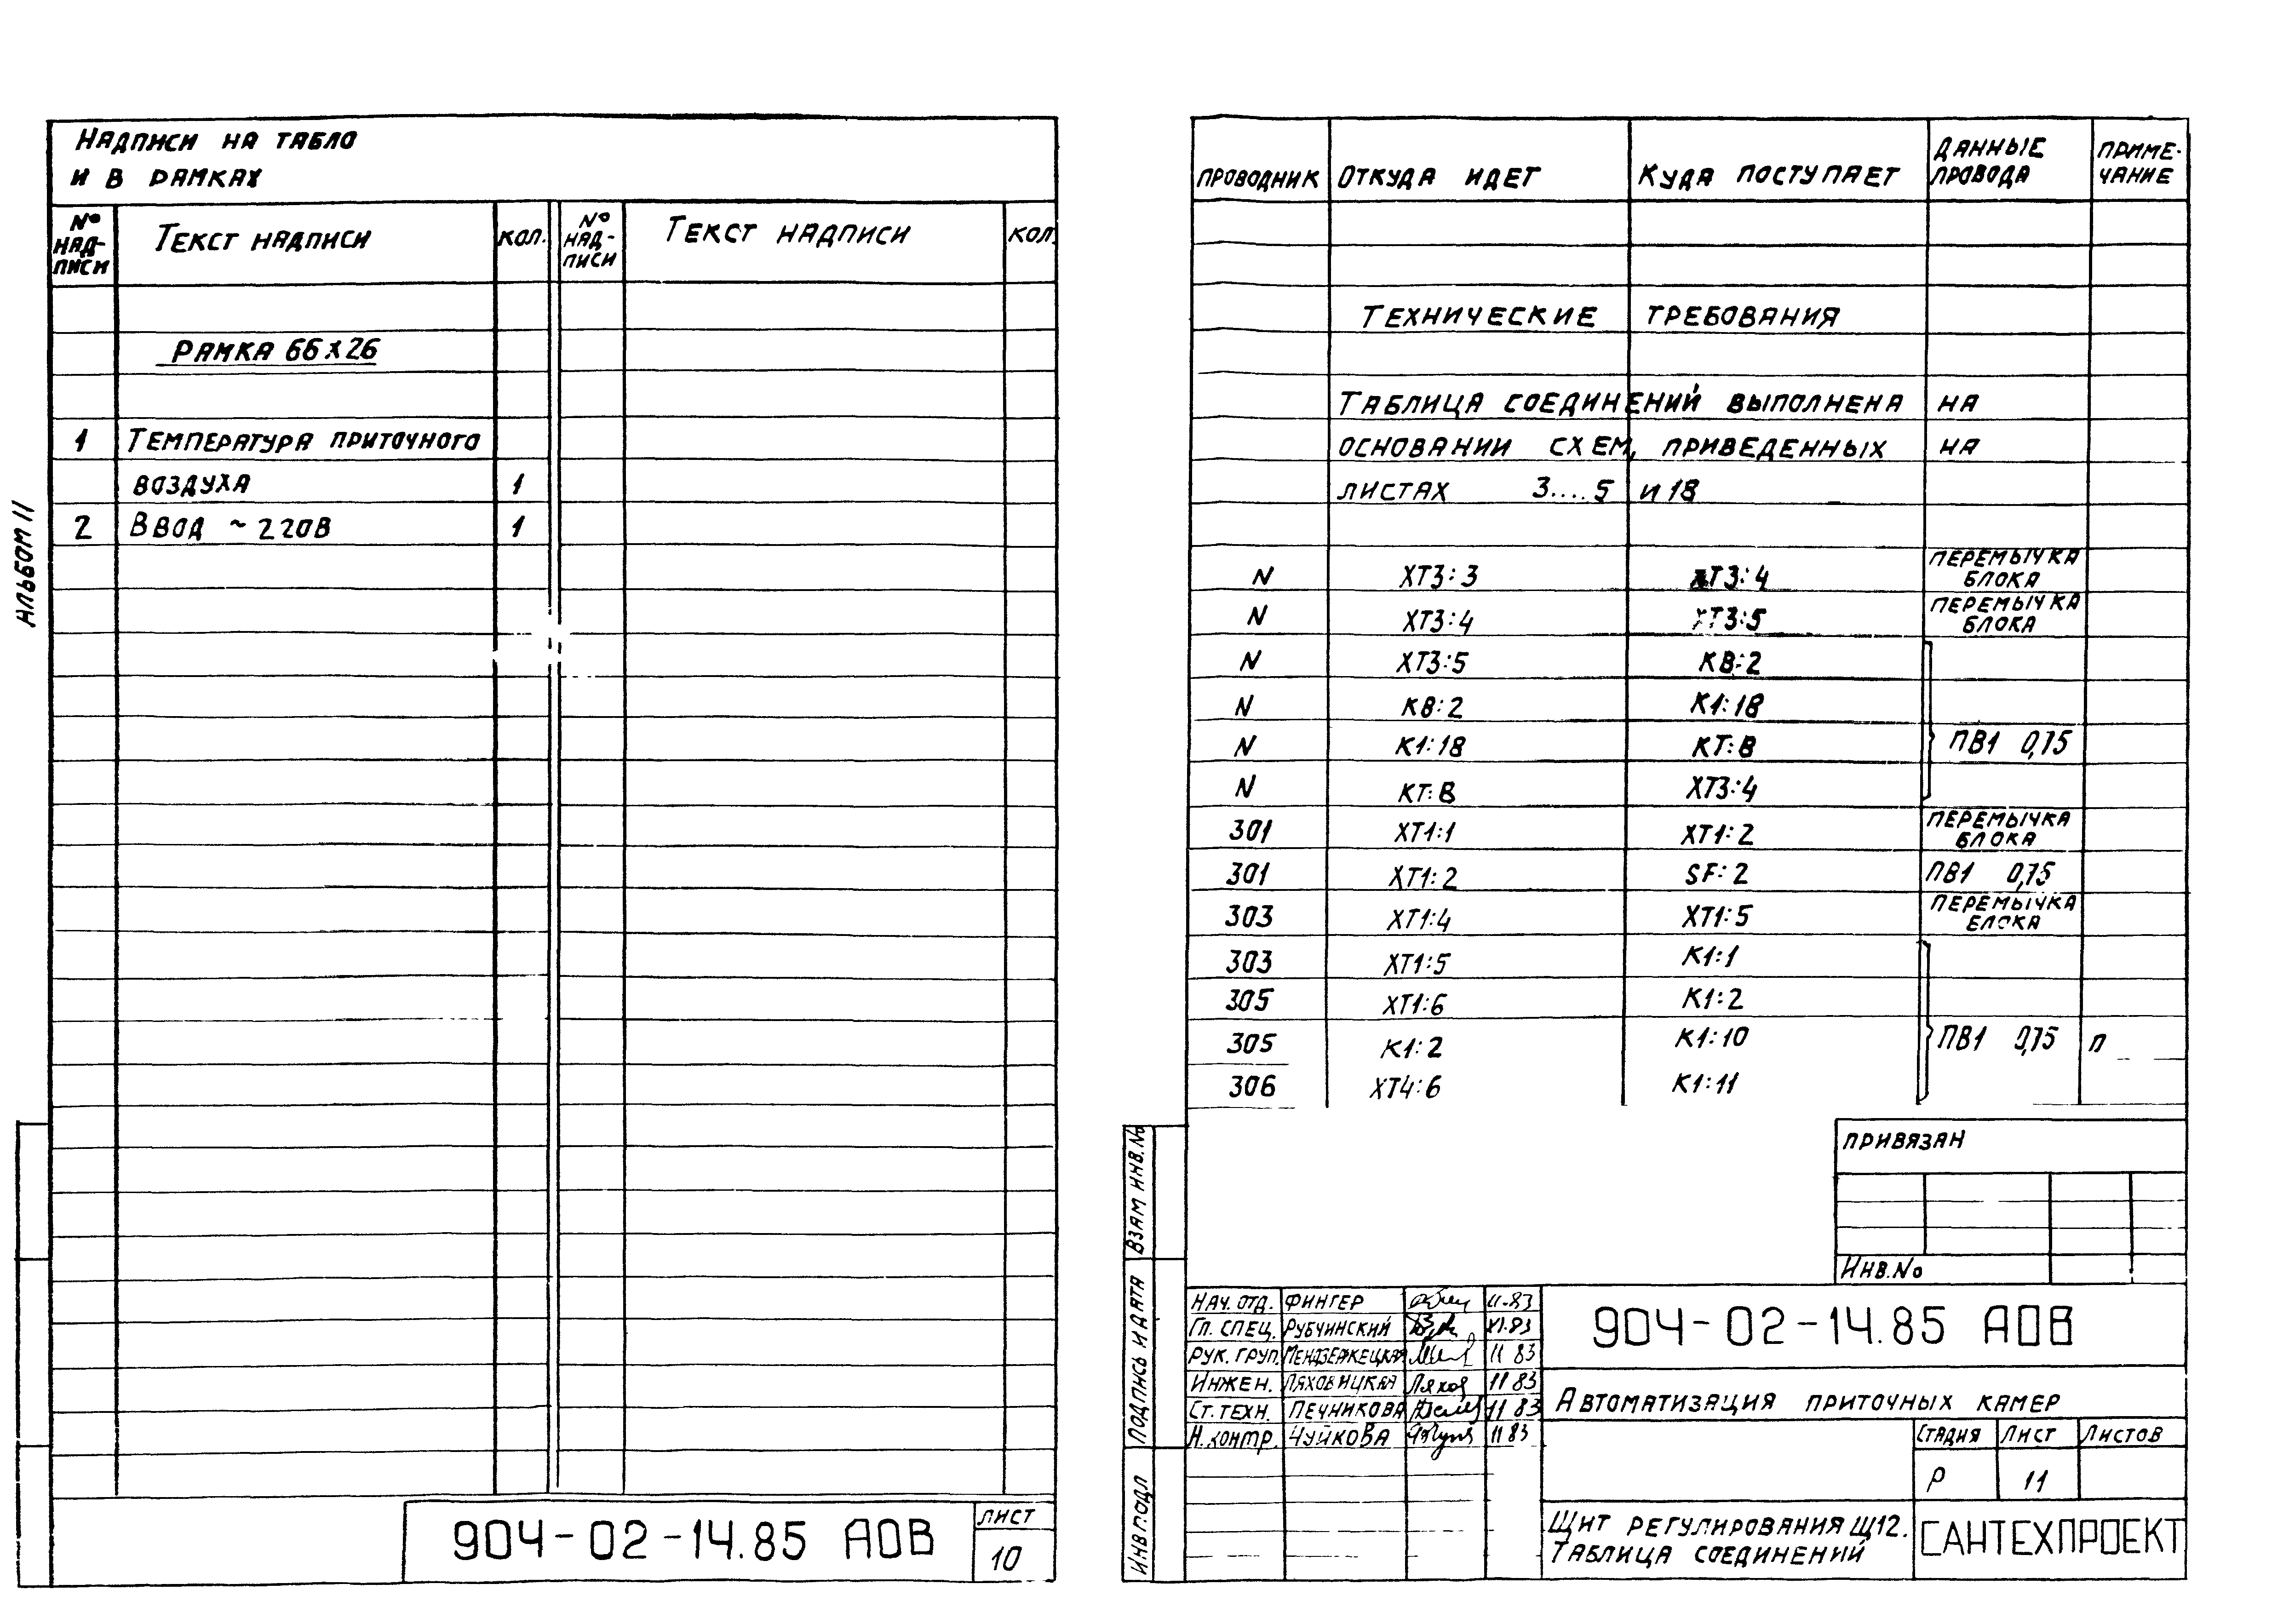 Альбом II
Надписи на табло
и в рамках
№ надписи Текст надписи кол. № надписи Текст надписи кол.
Рамка 66х26
1 Температура приточного
воздуха 1
2 Ввод ~220В 1
904-02-14.85 АОВ
лист
10
проводник откуда идет Куда поступает Данные провода Примечание
Технические требования
Таблица соединений выполнена на
основании схем, приведенных на
листах 3....5 и 18
N ХТ3:3 ХТ3:4 перемычка блока
N ХТ3:4 ХТ3:5 перемычка блока
N ХТ3:5 КВ:2
N КВ:2 К1:18
N К1:18 КТ:В ПВ1 0,75
N КТ:В ХТ3:4
301 ХТ1:1 ХТ1:2 перемычка блока
301 ХТ1:2 SF:2 ПВ1 0,75
303 ХТ1:4 ХТ1:5 перемычка блока
303 ХТ1:5 К1:1
305 ХТ1:6 К1:2
305 К1:2 К1:10 ПВ1 0,75 п
306 ХТ4:6 К1:11
привязан
Инв.№
Взам инв.№
Подпись и дата
Инв подл
Нач. отд. Фингер 11-83
Гл. спец. Рубчинский XI.83
Рук. груп. 11 83
Инжен. Ляховицкая Ляхов 11 83
Ст. техн. Печникова 11 83
Н. контр. Чуйкова 11 83
904-02-14.85 АОВ
Автоматизация приточных камер
Стадия Лист Листов
Р 11
Щит регулирования Щ12.
Таблица соединений
САНТЕХПРОЕКТ